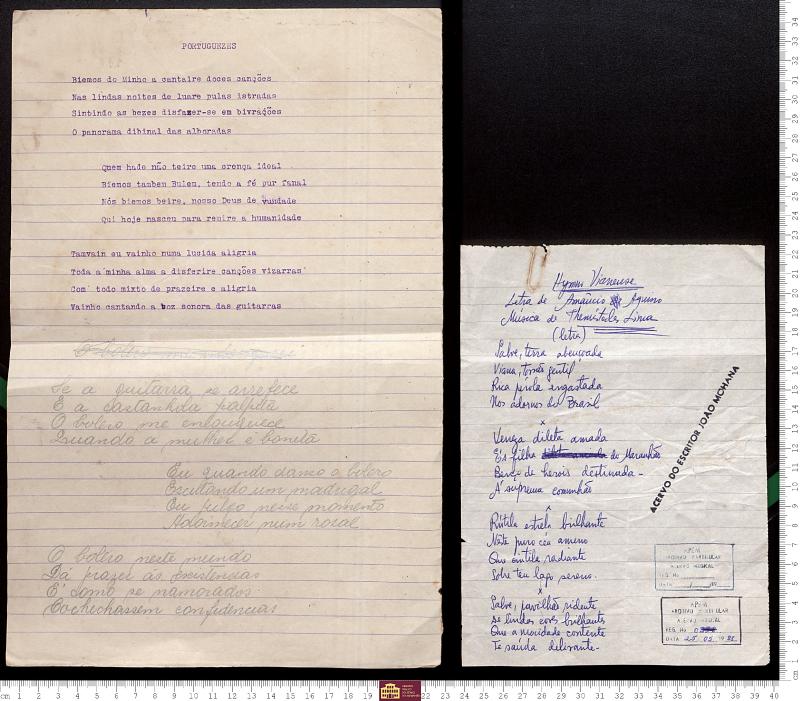 PORTUGUEZES
Biemos do Minho a cantaire doces canções
Nas lindas noites de luare pulas istradas
Sintindo as bezes disfazer-se em bivrações
O panorama dibinal das alboradas
Quem hade não teire uma crença ideal
Biemos tambem Bulem, tendo a fé pur fanal
Nós biemos beire, nosso Deus de vundade
Qui hoje nasceu para remire a humanidade
Tamvain eu vainho numa lusida aligria
Toda a minha alma a disferire canções vizarras
Com todo mixto de prazeire e aligria
Vainho cantando a boz sonora das guitarras
O bolero
Se a guitarra se arrefece
E a castanhita palpita
O boléro me enlouquece
Quando a mulher é bonita
Eu quando danso o bolero
Escutando um madrigal
Eu julgo nesse momento
Adormecer num rosal
O boléro neste mundo
Dá prazer as existencias
É como se namorados
Cochichassem confidencias
Hymno Vianense
Letra de Amâncio Aquino
Música de Themístocles Lima
(letra)
Salve, terra abençoada
Viana, torrão gentil
Rica perola engastada
Nos adornos do Brasil
x
Veneza dileta amada
És filha do Maranhão
Berço de herois destinada -
Á suprema comunhão
x
Rútila estrela brilhante
Nêste puro céu ameno
Que cintila radiante
Sobre teu lago sereno.
x
Salve, pavilhão ridente
De lindas cores brilhantes
Que a mocidade contente
Te saúda delirante-
ACERVO DO ESCRITOR JOÃO MOHANA
APEM
ARQUIVO PARTICULAR
ACERVO MUSICAL
REG. No
DATA
APEM
ARQUIVO PARTICULAR
ACERVO MUSICAL
REG. No
DATA 25 05 19